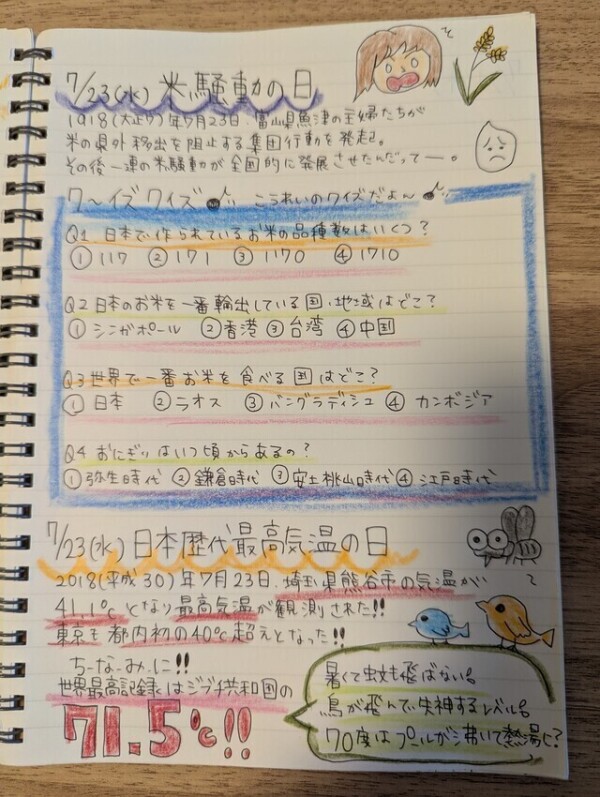 7/23(水) 米騒動の日
1918(大正7)年7月23日、富山県魚津の主婦たちが
米の県外移出を阻止する集団行動を発起。
その後一連の米騒動が全国的に発展させたんだってー。
ク〜イズクイズ こうれいのクイズだよん
Q1 日本で作られているお米の品種数はいくつ?
① 117 ② 171 ③ 1170 ④ 1710
Q2 日本のお米を一番輸出している国・地域はどこ?
① シンガポール ② 香港 ③ 台湾 ④ 中国
Q3 世界で一番お米を食べる国はどこ?
① 日本 ② ラオス ③ バングラディシュ ④ カンボジア
Q4 おにぎりはいつ頃からあるの?
① 弥生時代 ② 鎌倉時代 ③ 安土桃山時代 ④ 江戸時代
7/23(水) 日本歴代最高気温の日
2018(平成30)年7月23日、埼玉県熊谷市の気温が
41.1℃となり最高気温が観測された!!
東京も都内初の40℃超えとなった!!
ち・な・み・に!!
世界最高記録はジブチ共和国の
71.5℃!!
暑くて蚊も飛ばない。
鳥が飛んで失神するレベル。
70度はプールが沸いて熱湯に?